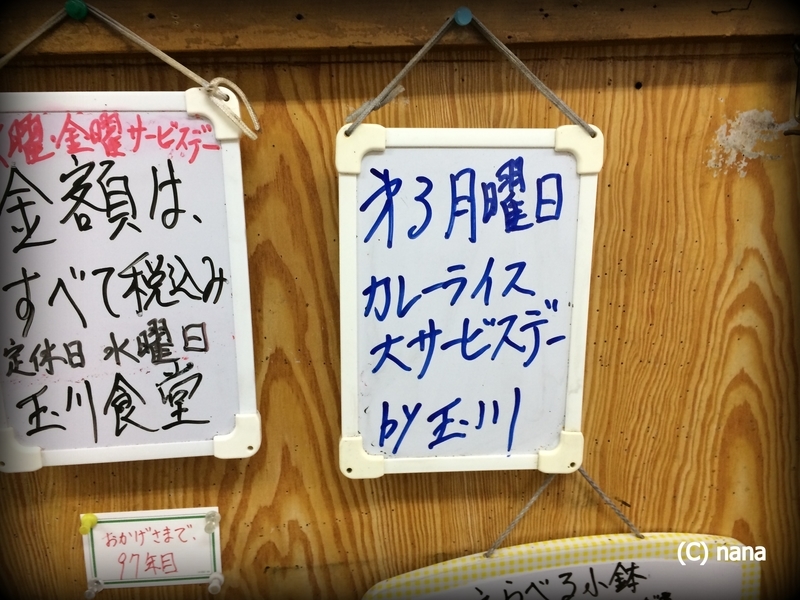 曜・金曜サービスデー
金額は、
すべて税込み
定休日 水曜日
玉川食堂
第3月曜日
カレーライス
大サービスデー
by 玉川
おかげさまで、
97年目
えらべる小鉢
(C) nana